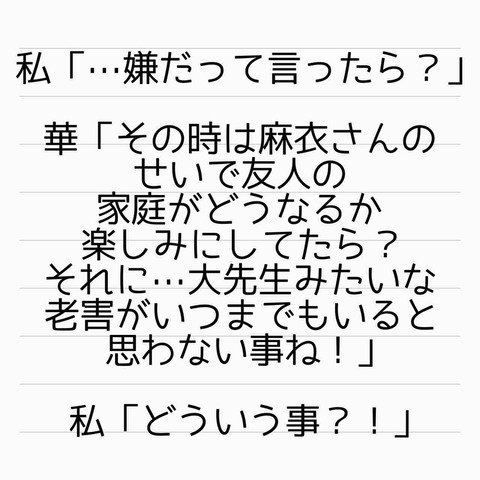 私「…嫌だって言ったら？」
華「その時は麻衣さんの
せいで友人の
家庭がどうなるか
楽しみにしてたら？
それに…大先生みたいな
老害がいつまでもいると
思わない事ね！」
私「どういう事？！」